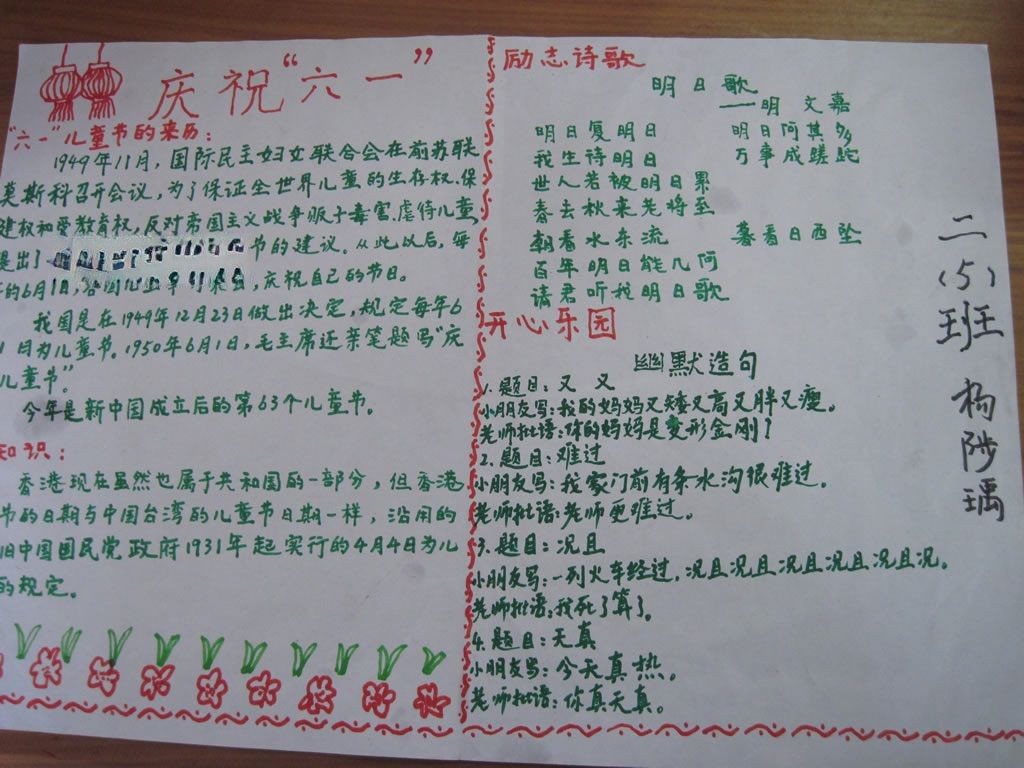 庆祝“六一”
“六一”儿童节的来历：
1949年11月，国际民主妇女联合会在前苏联
莫斯科召开会议，为了保证全世界儿童的生存权、保
健权和受教育权，反对帝国主义战争贩子毒害、虐待儿童，
提出了
节的建议。从此以后，每
的6月1日，
，庆祝自己的节日。
我国是在1949年12月23日做出决定，规定每年6
1日为儿童节。1950年6月1日，毛主席还亲笔题写“庆
儿童节”。
今年是新中国成立后的第63个儿童节。
知识：
香港现在虽然也属于共和国的一部分，但香港
节的日期与中国台湾的儿童节日期一样，沿用的
旧中国国民党政府1931年起实行的4月4日为儿
的规定。
励志诗歌
明日歌
——明 文嘉
明日复明日 明日何其多
我生诗明日 万事成蹉跎
世人若被明日累
春去秋来老将至
朝看水东流 暮看日西坠
百年明日能几何
请君听我明日歌
开心乐园
幽默造句
1.题目：又 又
小朋友写：我的妈妈又矮又高又胖又瘦。
老师批语：你的妈妈是变形金刚？
2.题目：难过
小朋友写：我家门前有条水沟很难过。
老师批语：老师更难过。
3.题目：况且
小朋友写：一列火车经过，况且况且况且况且况且况。
老师批语：我死了算了。
4.题目：天真
小朋友写：今天真热。
老师批语：你真天真。
二（5）班 杨陟瑀